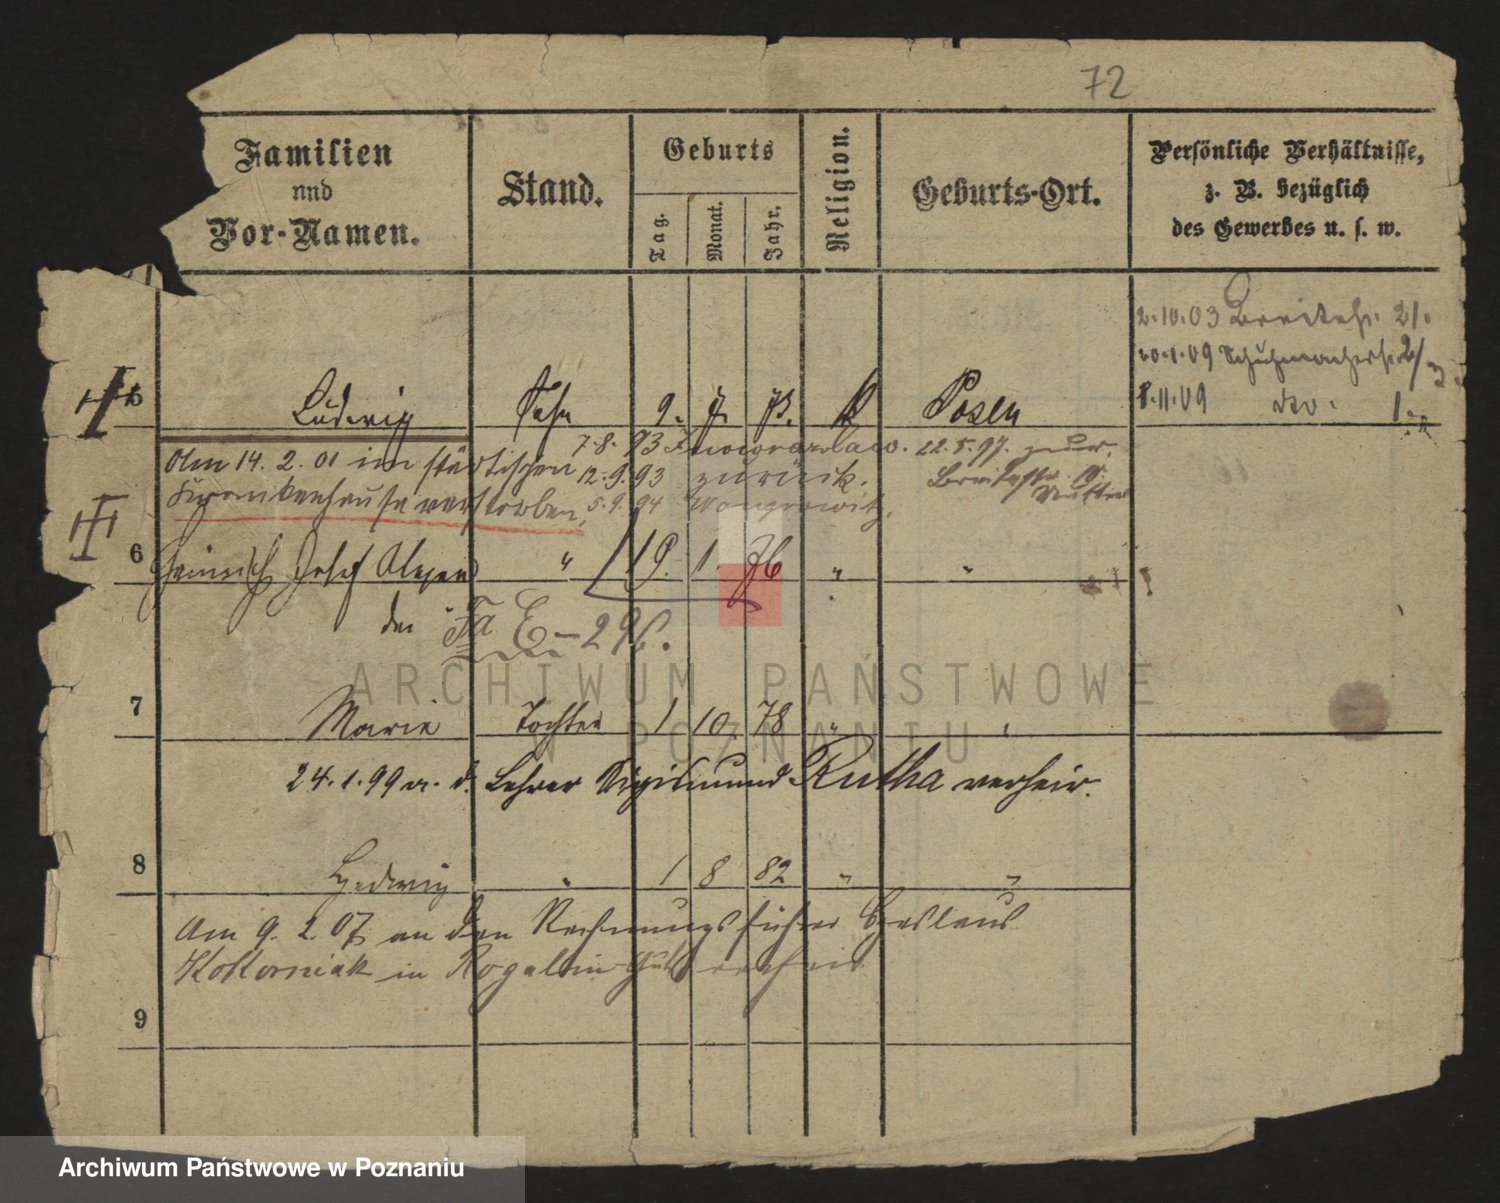 72
Familien
und
Vor-Namen.
Stand.
Geburts
Tag.
Monat.
Jahr.
Religion.
Geburts-Ort.
Persönliche Verhältnisse,
z. B. bezüglich
des Gewerbes u. s. w.
2.10.03 Breitestr. 21.
20.1.09 Schuhmacherstr.
8.11.09 do. 1.
5 Ludwig Sohn 9. 7. 73. k Posen
Am 14. 2. 01 im städtischen
Krankenhause verstorben,
7.8.93 Inowrazlaw. 22.5.97. zur.
12.9.93 zurück. Breitestr.
5.9.94 Wongrowitz. Mutter
6 Heinrich Josef " 19. 1. 76 " "
E-296.
ARCHIWUM PAŃSTWOWE
W POZNANIU
7 Marie Tochter 1 10 78 " "
24.1.99 a. d. Lehrer Sigismund Rutha verheir.
8 Hedwig " 1 8 82 " "
Am 9. 2. 07 an den Rechnungsführer Ceslaus
Kokorniak in Rogalin
9
Archiwum Państwowe w Poznaniu